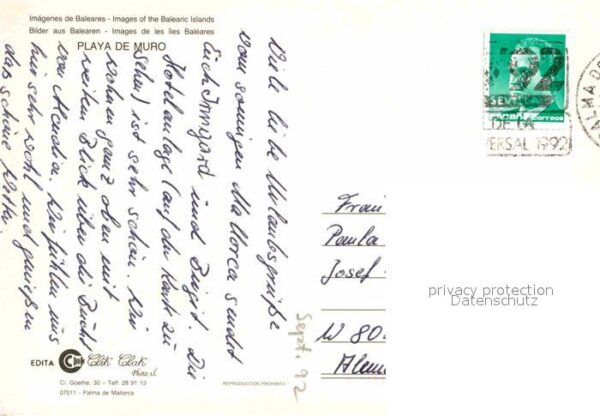 Imágenes de Baleares - Images of the Balearic Islands
Bilder aus Balearen - Images de les îles Baléares
PLAYA DE MURO
Viele liebe Urlaubsgrüße
vom sonnigen Mallorca sendet
Euch Irmgard und Birgit. Die
Hotelanlage (auf der Karte zu
sehen) ist sehr schön. Wir
wohnen ganz oben mit
weitem Blick über die Bucht
von Alcudia. Wir fühlen uns
hier sehr wohl und genießen
das schöne Wetter.
92
Correos
DE LA
VERSAL 1992
PALMA DE
Paula
Josef
W 80
Sept. 92
privacy protection
Datenschutz
EDITA Clik Clak
C/. Goethe, 30 - Telf. 28 91 13
07011 - Palma de Mallorca
REPRODUCCION PROHIBIDA